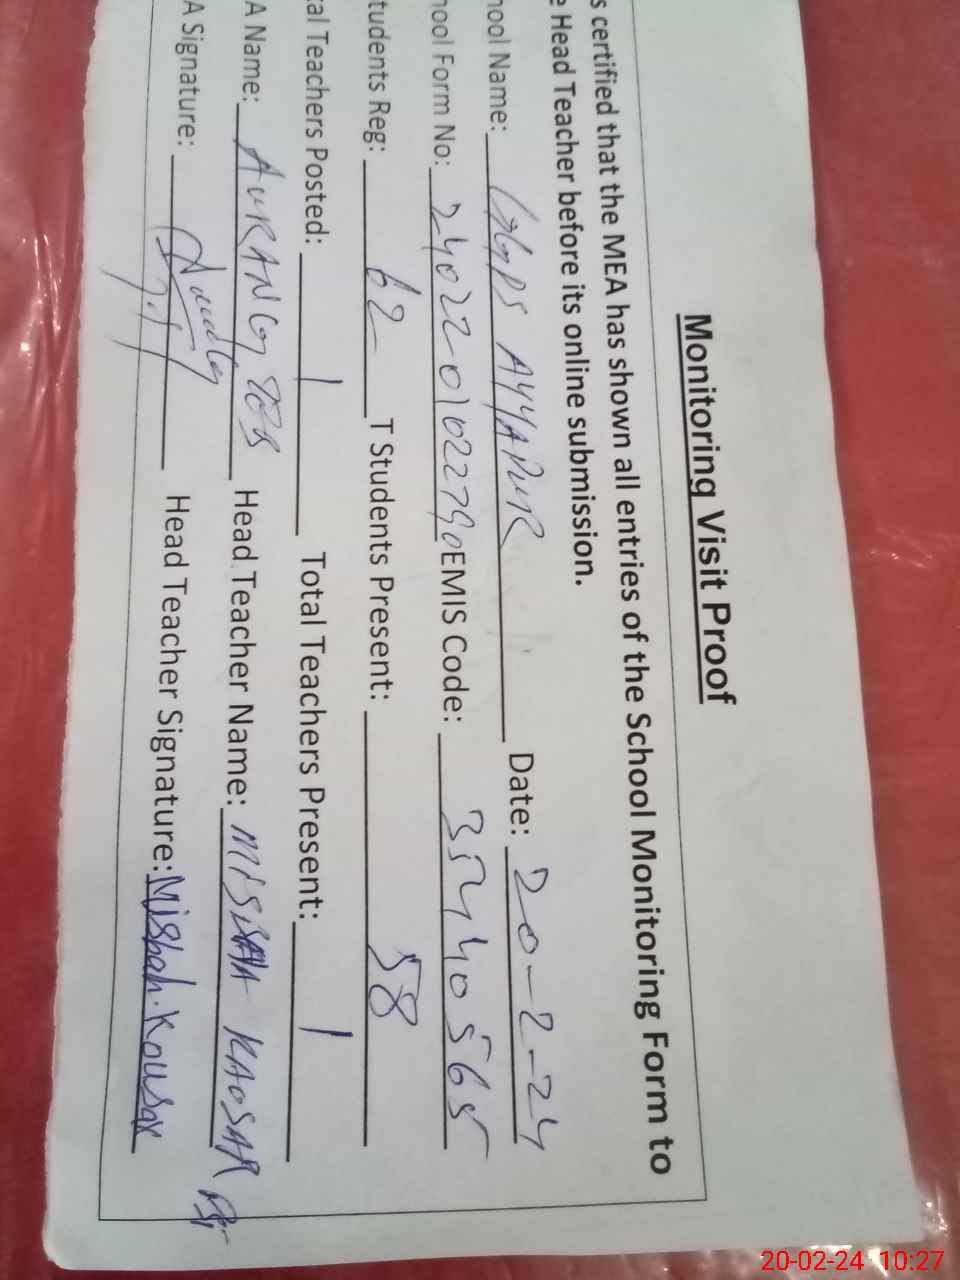 Monitoring Visit Proof
s certified that the MEA has shown all entries of the School Monitoring Form to
e Head Teacher before its online submission.
hool Name: GGPS AYYAPUR Date: 20-2-24
hool Form No: 240220102290 EMIS Code: 35440565
tudents Reg: 62 T Students Present: 58
tal Teachers Posted: 1 Total Teachers Present: 1
A Name: AURANG ZEB Head Teacher Name: MISBAH KAOSAR
A Signature: Head Teacher Signature: Misbah.Kousar
20-02-24 10:27